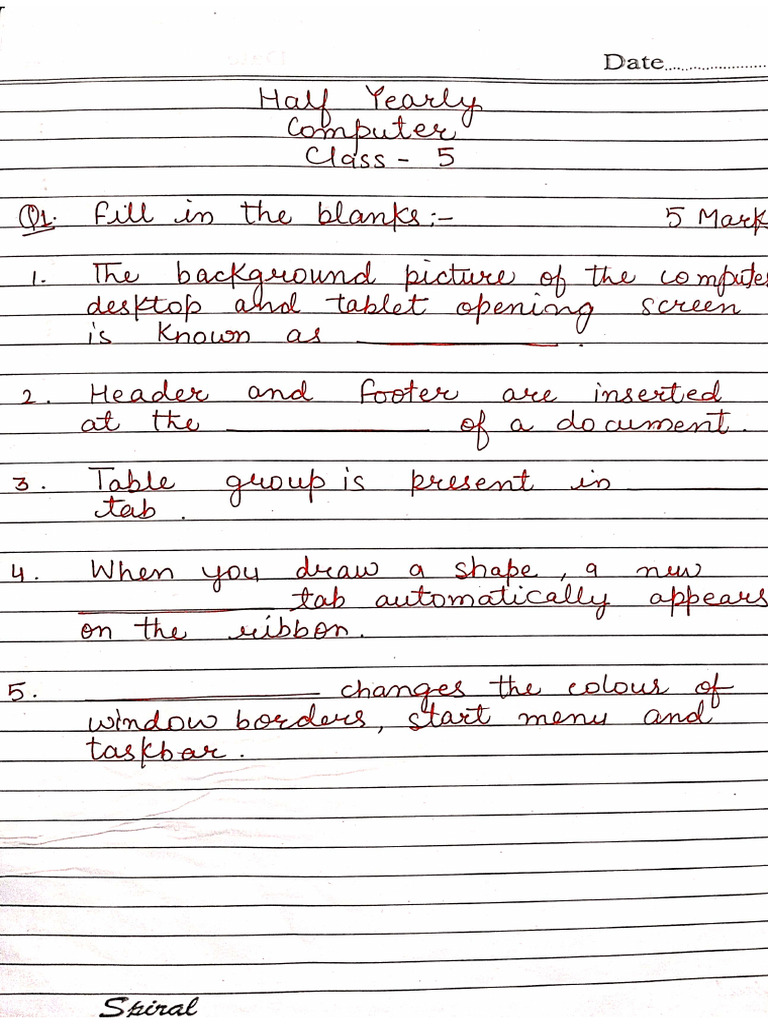 Date........................
Half Yearly
Computer
Class - 5
Q1. Fill in the blanks:- 5 Mark
1. The background picture of the compute
desktop and tablet opening screen
is known as ____________ .
2. Header and footer are inserted
at the ____________ of a document.
3. Table group is present in ________
tab.
4. When you draw a shape, a new
____________ tab automatically appears
on the ribbon.
5. ______________ changes the colour of
window borders, start menu and
taskbar.
Spiral